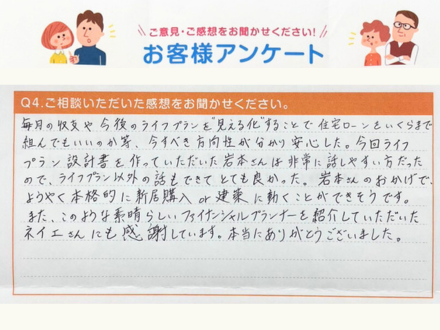 ご意見・ご感想をお聞かせください!
お客様アンケート
Q4.ご相談いただいた感想をお聞かせください。
毎月の収支や今後のライフプランを"見える化"することで住宅ローンをいくらまで
組んでもいいのか等、今すべき方向性が分かり安心した。今回ライフ
プラン設計書を作っていただいた岩本さんは非常に話しやすい方だった
ので、ライフプラン以外の話もできてとても良かった。岩本さんのおかげで、
ようやく本格的に新居購入or建築に動くことができそうです。
また、このような素晴らしいファイナンシャルプランナーを紹介していただいた
ネイエさんにも感謝しています。本当にありがとうございました。